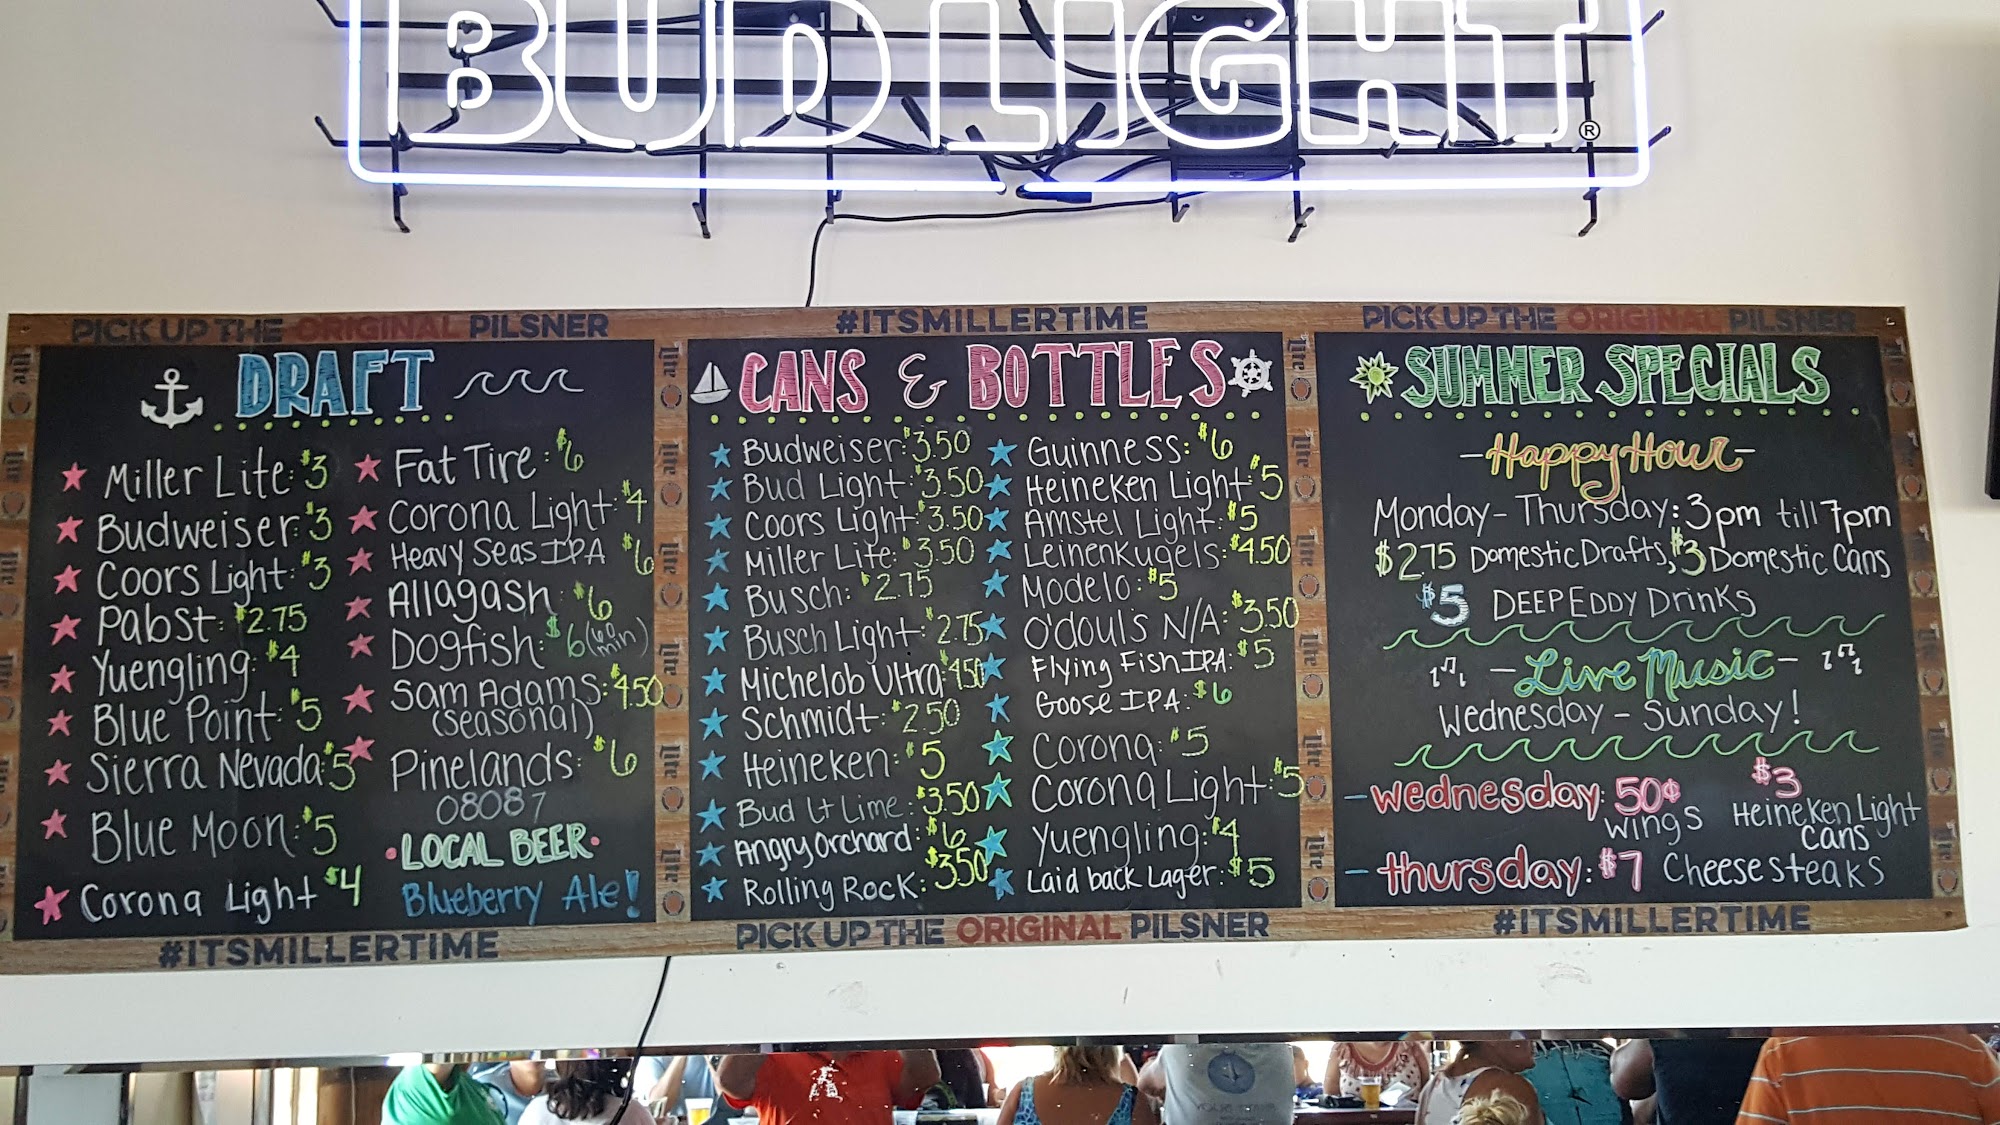 BUD LIGHT ®
PICK UP THE ORIGINAL PILSNER
#ITSMILLERTIME
PICK UP THE ORIGINAL PILSNER
DRAFT
Miller Lite: $3
Budweiser: $3
Coors Light: $3
Pabst: $2.75
Yuengling: $4
Blue Point: $5
Sierra Nevada: $5
Blue Moon: $5
Corona Light $4
Fat Tire: $6
Corona Light: $4
Heavy Seas IPA $6
Allagash: $6
Dogfish: $6 (60 min)
Sam Adams: $4.50
(seasonal)
Pinelands: $6
08087
LOCAL BEER
Blueberry Ale!
CANS & BOTTLES
Budweiser: $3.50
Bud Light: $3.50
Coors Light: $3.50
Miller Lite: $3.50
Busch: $2.75
Busch Light: $2.75
Michelob Ultra $4.50
Schmidt: $2.50
Heineken: $5
Bud Lt Lime: $3.50
Angry Orchard: $6
Rolling Rock: $3.50
Guinness: $6
Heineken Light: $5
Amstel Light: $5
Leinenkugels: $4.50
Modelo: $5
O'douls N/A: $3.50
Flying Fish IPA: $5
Goose IPA: $6
Corona: $5
Corona Light: $5
Yuengling: $4
Laid back Lager: $5
SUMMER SPECIALS
- Happy Hour -
Monday - Thursday: 3pm till 7pm
$2.75 Domestic Drafts, $3 Domestic Cans
$5 DEEP EDDY Drinks
- Live Music -
Wednesday - Sunday!
- wednesday: 50¢ wings $3 Heineken Light cans
- thursday: $7 Cheesesteaks
#ITSMILLERTIME
PICK UP THE ORIGINAL PILSNER
#ITSMILLERTIME
Lite